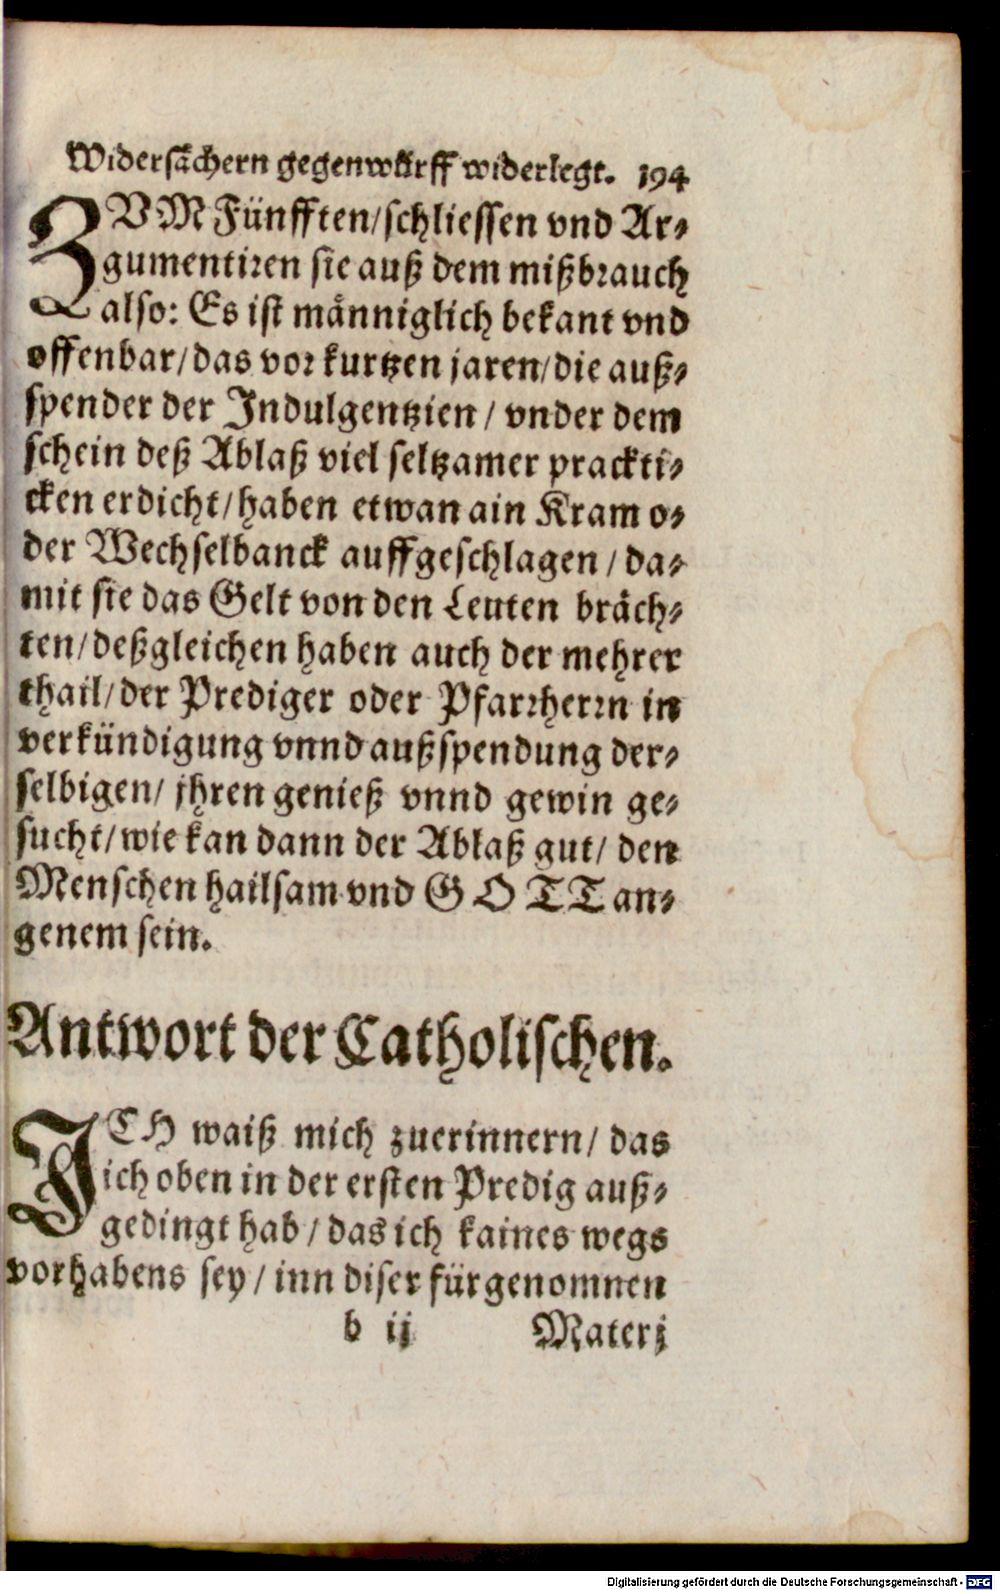 Widersächern gegenwürff widerlegt. 194
ZVM Fünfften/schliessen vnd Ar⸗
gumentiren sie auß dem mißbrauch
also: Es ist männiglich bekant vnd
offenbar/das vor kurtzen jaren/die auß⸗
spender der Indulgentzien / vnder dem
schein deß Ablaß viel seltzamer prackti⸗
cken erdicht/haben etwan ain Kram o⸗
der Wechselbanck auffgeschlagen / da⸗
mit sie das Gelt von den Leuten bräch⸗
ten/deßgleichen haben auch der mehrer
thail/der Prediger oder Pfarrherrn in
verkündigung vnnd außspendung der⸗
selbigen/ jhren genieß vnnd gewin ge⸗
sucht/wie kan dann der Ablaß gut/ den
Menschen hailsam vnd GOTT an⸗
genem sein.
Antwort der Catholischen.
ICH waiß mich zuerinnern/ das
ich oben in der ersten Predig auß⸗
gedingt hab / das ich kaines wegs
vorhabens sey / inn diser fürgenomnen
b ij Materj
Digitalisierung gefördert durch die Deutsche Forschungsgemeinschaft - DFG